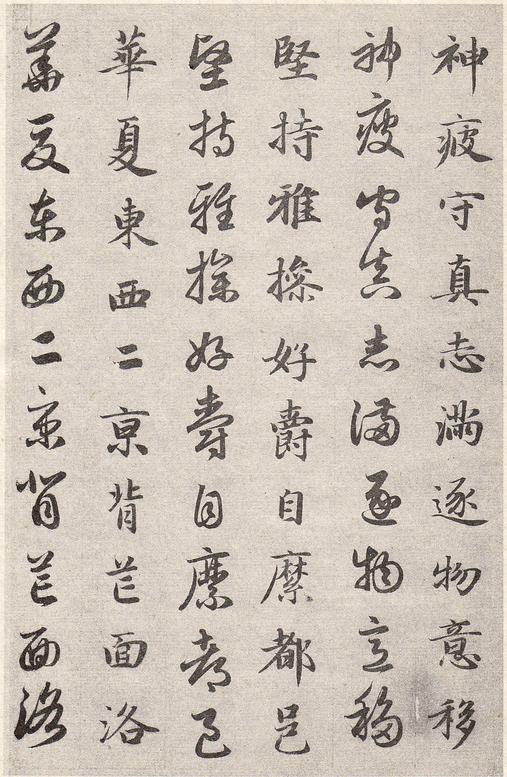 神疲守真志滿逐物意移
神疲守真志滿逐物意移
堅持雅操好爵自縻都邑
堅持雅操好爵自縻都邑
華夏東西二京背芒面洛
華夏東西二京背芒面洛